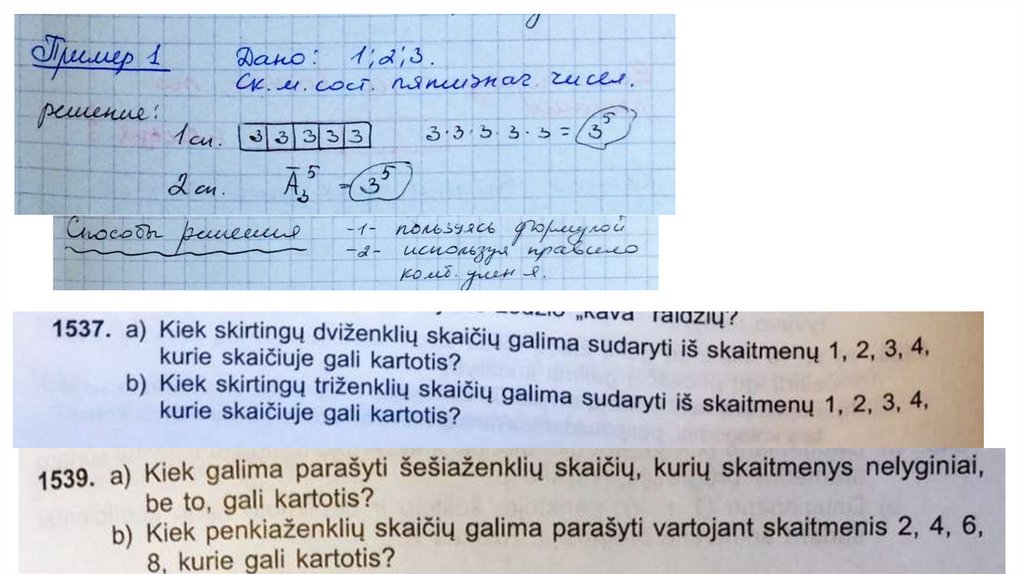 Пример 1 Дано: 1; 2; 3.
Ск. м. сост. пятизнач. чисел.
решение:
1 сп. 3 3 3 3 3 3·3·3·3·3 = 3⁵
2 сп. Ā₃⁵ = 3⁵
Способы решения -1- пользуясь формулой
-2- используя правило
комб. умен-я.
„kava" raidžių?
1537. a) Kiek skirtingų dviženklių skaičių galima sudaryti iš skaitmenų 1, 2, 3, 4,
kurie skaičiuje gali kartotis?
b) Kiek skirtingų triženklių skaičių galima sudaryti iš skaitmenų 1, 2, 3, 4,
kurie skaičiuje gali kartotis?
1539. a) Kiek galima parašyti šešiaženklių skaičių, kurių skaitmenys nelyginiai,
be to, gali kartotis?
b) Kiek penkiaženklių skaičių galima parašyti vartojant skaitmenis 2, 4, 6,
8, kurie gali kartotis?